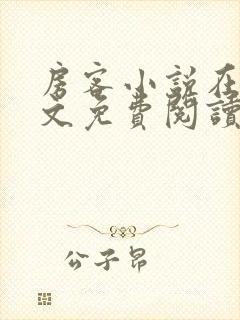 房客小說在
文免費閱讀
公子昂